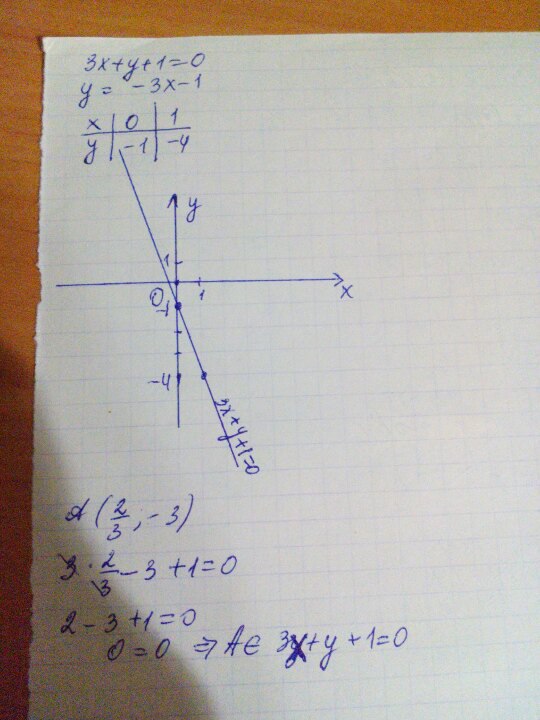 3x+y+1=0
y = -3x-1
x | 0 | 1
y | -1 | -4
y
1
O 1 x
-1
-4
3x+y+1=0
A (2/3; -3)
3 · 2/3 - 3 + 1 = 0
2 - 3 + 1 = 0
0 = 0 ⇒ A ∈ 3x+y+1=0